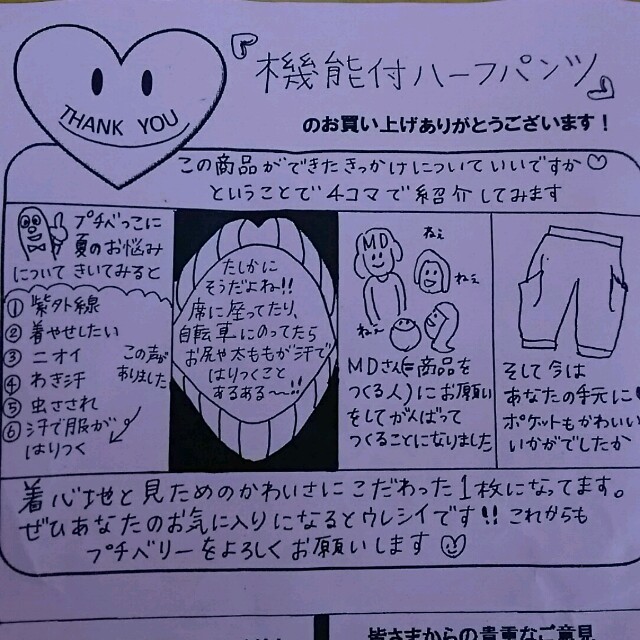 THANK YOU
『機能付ハーフパンツ』
のお買い上げありがとうございます！
この商品ができたきっかけについていいですか♡
ということで4コマで紹介してみます
プチベっこに
夏のお悩み
についてきいてみると
① 紫外線
② 着やせしたい
③ ニオイ
④ わき汗
⑤ 虫さされ
⑥ 汗で服が
はりつく
この声が
ありました
たしかに
そうだよね!!
席に座ってたり、
自転車にのってたら
お尻や太ももが汗で
はりつくこと
あるある〜!!
MD
ねぇ
ねぇ
ねぇ
MDさん(=商品を
つくる人)にお願い
をしてがんばって
つくることになりました
そして今は
あなたの手元に♡
ポケットもかわいい
いかがでしたか
着心地と見ためのかわいさにこだわった1枚になってます。
ぜひあなたのお気に入りになるとウレシイです!! これからも
プチベリーをよろしくお願いします♡
皆さまからの貴重なご意見